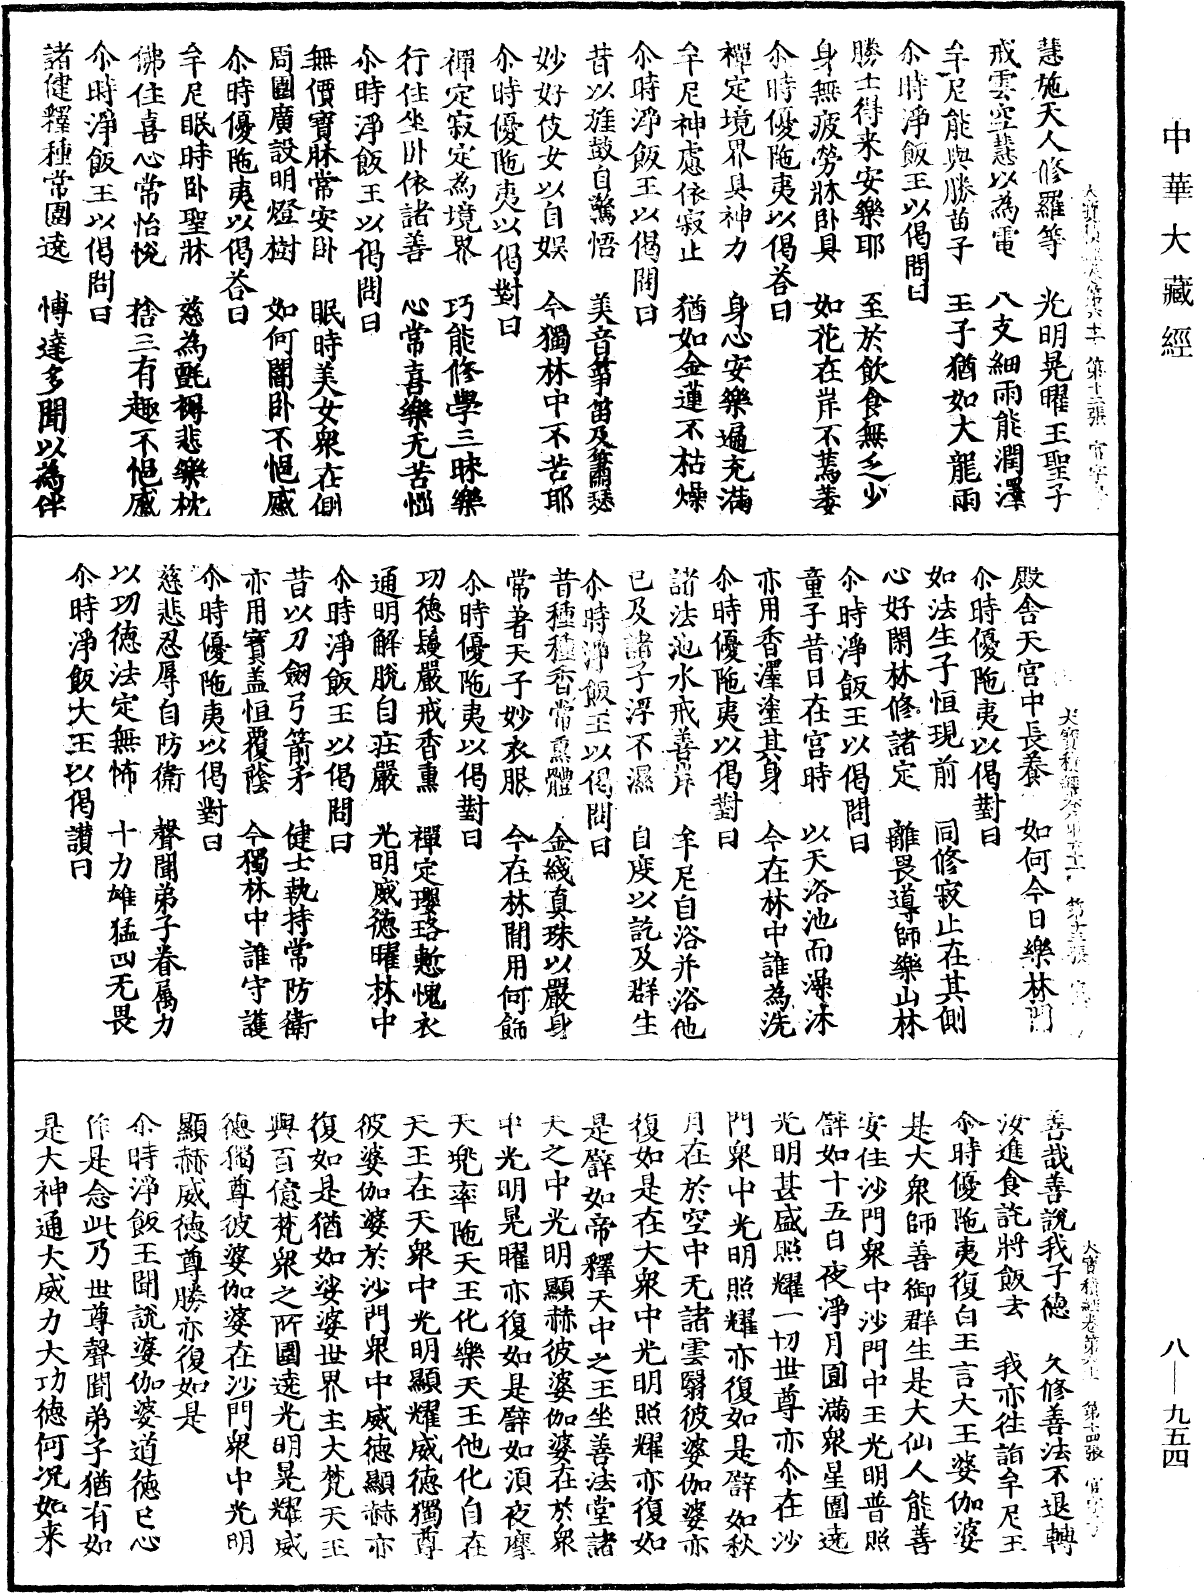 中華大藏經
八—九五四
慧施天人修羅等　光明晃曜王聖子
戒雲空慧以為電　八支細雨能潤澤
牟尼能與勝苗子　王子猶如大龍雨
尒時淨飯王以偈問曰
勝士得来安樂耶　至於飲食無乏少
身無疲勞牀卧具　如花在岸不蔫萎
尒時優陁夷以偈荅曰
禪定境界具神力　身心安樂遍充滿
牟尼神慮依寂止　猶如金蓮不枯燥
尒時淨飯王以偈問曰
昔以旌鼓自驚悟　美音箏笛及簫瑟
妙好伎女以自娱　今獨林中不苦耶
尒時優陁夷以偈對曰
禪定寂定為境界　巧能修學三昧樂
行住坐卧依諸善　心常喜樂无苦惱
尒時淨飯王以偈問曰
無價寶牀常安卧　眠時美女衆在側
周圍廣設明燈樹　如何闇卧不悒慼
尒時優陁夷以偈荅曰
牟尼眠時卧聖牀　慈為氈褥悲樂枕
佛住喜心常怡悅　捨三有趣不悒慼
尒時淨飯王以偈問曰
諸健釋種常圍遶　愽達多聞以為伴
殿舍天宮中長養　如何今日樂林間
尒時優陁夷以偈對曰
如法生子恒現前　同修寂止在其側
心好閑林修諸定　離畏導師樂山林
尒時淨飯王以偈問曰
童子昔日在宮時　以天浴池而澡沐
亦用香澤塗其身　今在林中誰為洗
尒時優陁夷以偈對曰
諸法池水戒善岸　牟尼自浴并浴他
已及諸子浮不濕　自度以訖及群生
尒時淨飯王以偈問曰
昔種種香常熏體　金綫真珠以嚴身
常著天子妙衣服　今在林間用何飾
尒時優陁夷以偈對曰
功德鬘嚴戒香熏　禪定瓔珞慙愧衣
通明解脫自莊嚴　光明威德曜林中
尒時淨飯王以偈問曰
昔以刀劒弓箭矛　健士執持常防衛
亦用寶盖恒覆蔭　今獨林中誰守護
尒時優陁夷以偈對曰
慈悲忍辱自防衛　聲聞弟子眷属力
以功德法定無怖　十力雄猛四无畏
尒時淨飯大王以偈讃曰
善哉善說我子德　久修善法不退轉
汝進食訖將飯去　我亦往詣牟尼王
尒時優陁夷復白王言大王婆伽婆
是大衆師善御群生是大仙人能善
安住沙門衆中沙門中王光明普照
譬如十五日夜淨月圓滿衆星圍遶
光明甚盛照耀一切世尊亦尒在沙
門衆中光明照耀亦復如是譬如秋
月在於空中无諸雲翳彼婆伽婆亦
復如是在大衆中光明照耀亦復如
是譬如帝釋天中之王坐善法堂諸
天之中光明顯赫彼婆伽婆在於衆
中光明晃曜亦復如是譬如須夜摩
天兜率陁天王化樂天王他化自在
天王在天衆中光明顯耀威德獨尊
彼婆伽婆於沙門衆中威德顯赫亦
復如是猶如娑婆世界主大梵天王
與百億梵衆之所圍遶光明晃耀威
德獨尊彼婆伽婆在沙門衆中光明
顯赫威德尊勝亦復如是
尒時淨飯王聞說婆伽婆道德已心
作是念此乃世尊聲聞弟子猶有如
是大神通大威力大功德何况如来